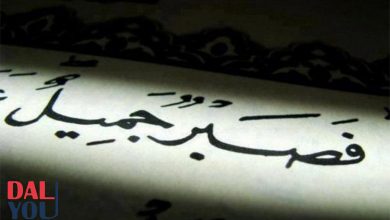 فَصَبْرٌ جَمِيلٌ
DAL
YOU